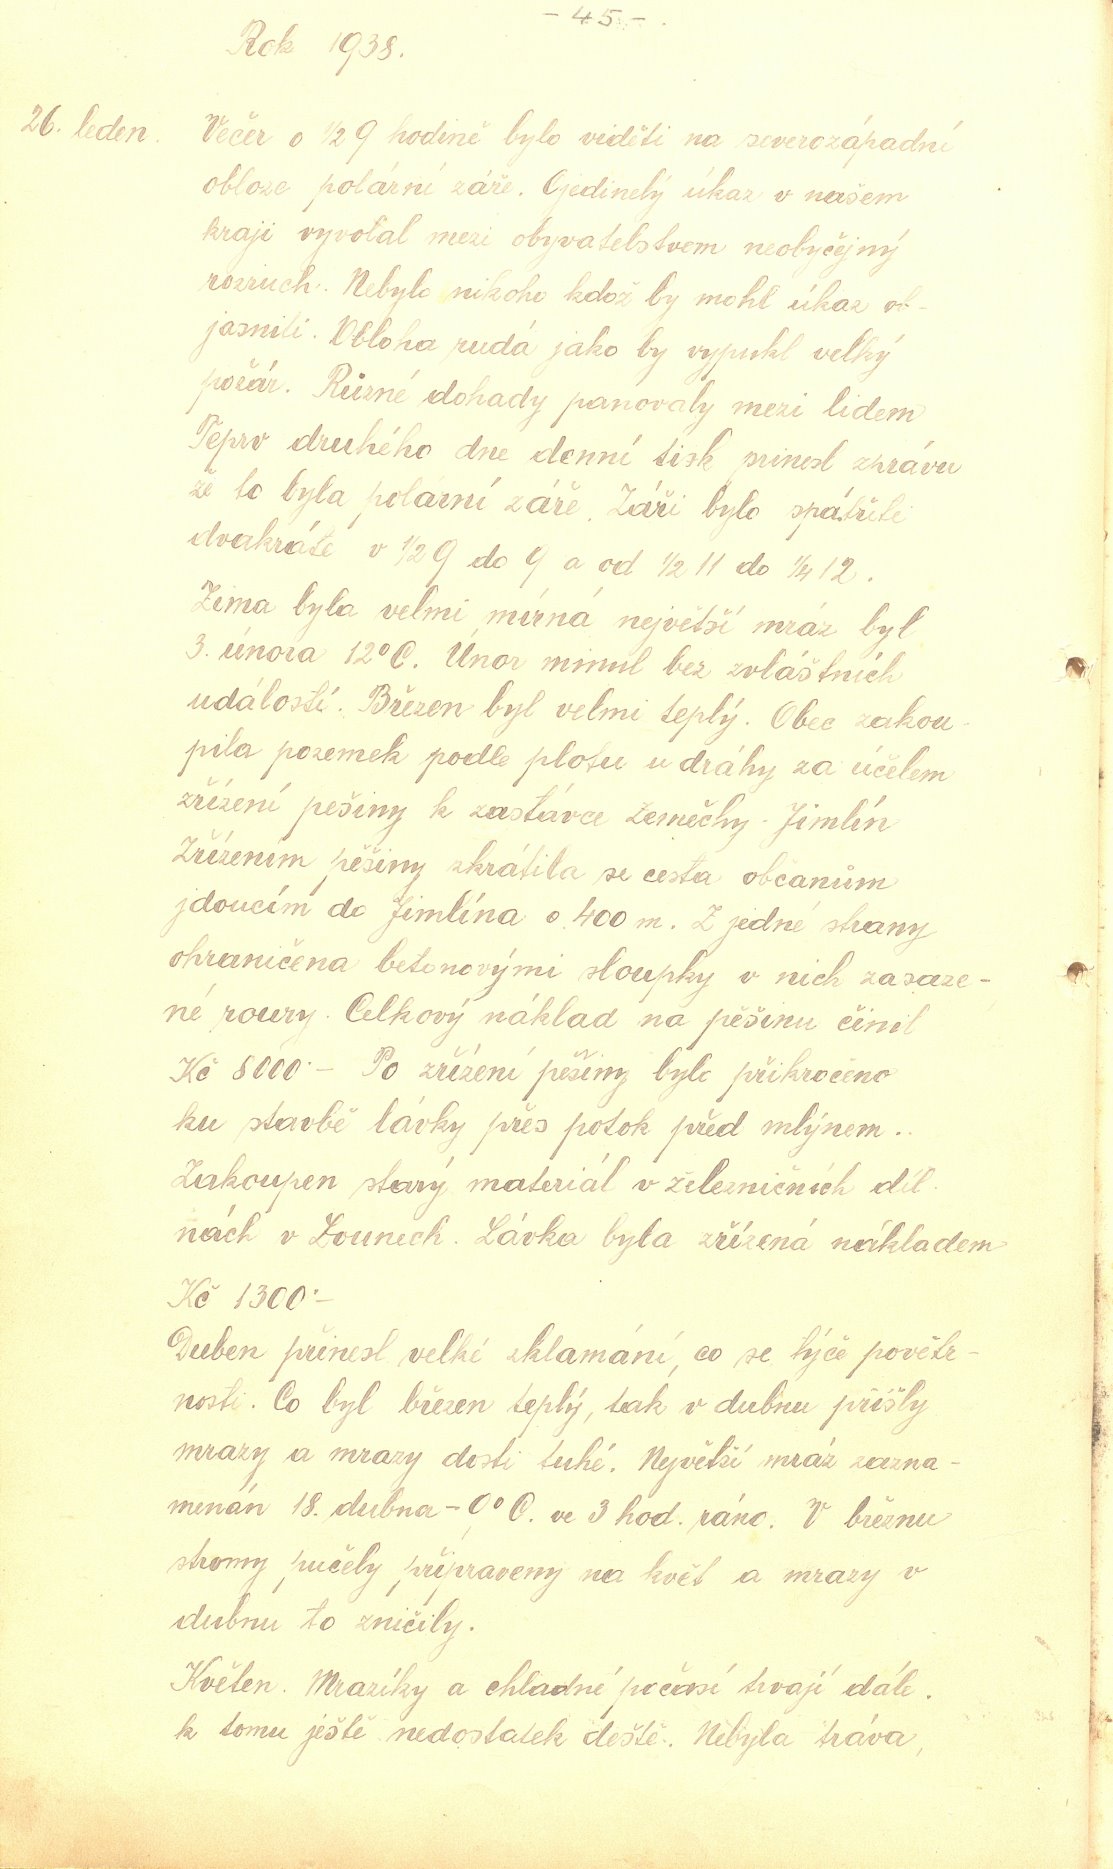 - 45 -.
Rok 1938.
26. leden. Večer o 1/2 9 hodině bylo viděti na severozápadní
obloze polární záře. Ojedinělý úkaz v našem
kraji vyvolal mezi obyvatelstvem neobyčejný
rozruch. Nebylo nikoho kdož by mohl úkaz ob-
jasniti. Obloha rudá jako by vypukl velký
požár. Různé dohady panovaly mezi lidem
Teprv druhého dne denní tisk prinesl zprávu
že to byla polární záře. Záři bylo spátřiti
dvakráte v 1/2 9 do 9 a od 1/2 11 do 1/4 12.
Zima byla velmi mírná největší mráz byl
3. února 12° C. Únor minul bez zvláštních
událostí. Březen byl velmi teplý. Obec zakou-
pila pozemek podle plotu u dráhy za účelem
zřízení pešiny k zastávce Zeměchy - Jimlín
Zřízením pěšiny zkrátila se cesta občanům
jdoucím do Jimlína o 400 m. Z jedné strany
ohraničena betonovými sloupky v nich zasaze-
né roury. Celkový náklad na pěšinu činil
Kč 8000·- Po zřízení pěšiny bylo přikročeno
ku stavbě lávky přes potok před mlýnem..
Zakoupen starý materiál v železničních díl-
nách v Lounech. Lávka byla zřízená nákladem
Kč 1300·-
Duben přinesl velké zklamání, co se týče povětr-
nosti. Co byl březen teplý, tak v dubnu přišly
mrazy a mrazy dosti tuhé. Největší mráz zazna-
menán 18. dubna - 9° C. ve 3 hod. ráno. V březnu
stromy pučely připraveny na květ a mrazy v
dubnu to zničily.
Květen. Mrazíky a chladné počasí trvají dále.
k tomu ještě nedostatek deště. Nebyla tráva,